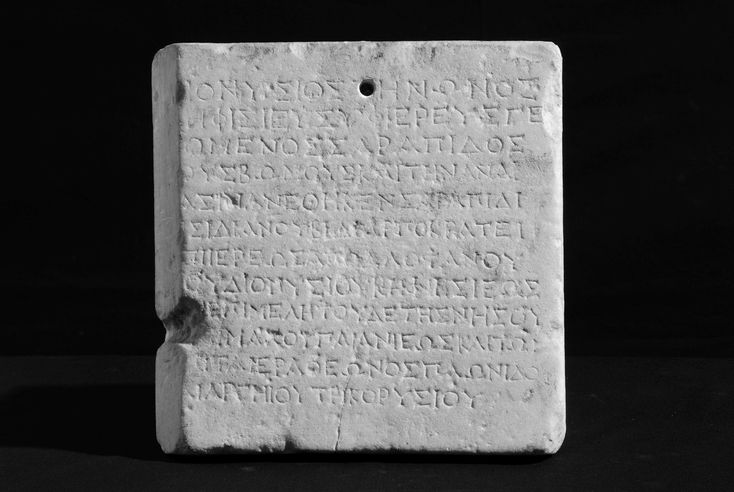 ΙΟΝΥΣΙΟΣ ΖΗΝΩΝΟΣ
ΗΦΙΣΙΕΥΣ ΙΕΡΕΥΣ ΓΕ
ΟΜΕΝΟΣ ΣΑΡΑΠΙΔΟΣ
ΟΥΣ ΒΩΜΟΥΣ ΚΑΙ ΤΗΝ ΑΝΑΒ
ΑΣΙΝ ΑΝΕΘΗΚΕΝ ΣΑΡΑΠΙΔΙ
ΙΣΙΔΙ ΑΝΟΥΒΙΔΙ ΑΡΠΟΚΡΑΤΕΙ
ΕΠΙ ΙΕΡΕΩΣ ΑΠΟΛΛΟΦΑΝΟΥ
ΟΥ ΔΙΟΝΥΣΙΟΥ ΚΗΦΙΣΙΕΩΣ
ΕΠΙΜΕΛΗΤΟΥ ΔΕ ΤΗΣ ΝΗΣΟΥ
ΜΑΧΟΥ ΠΑΙΑΝΙΕΩΣ ΚΑΙ ΤΩΝ
ΕΠΙ ΤΑ ΙΕΡΑ ΘΕΩΝΟΣ ΠΑΙΟΝΙΔΟ
ΤΡΙΚΟΡΥΣΙΟΥ